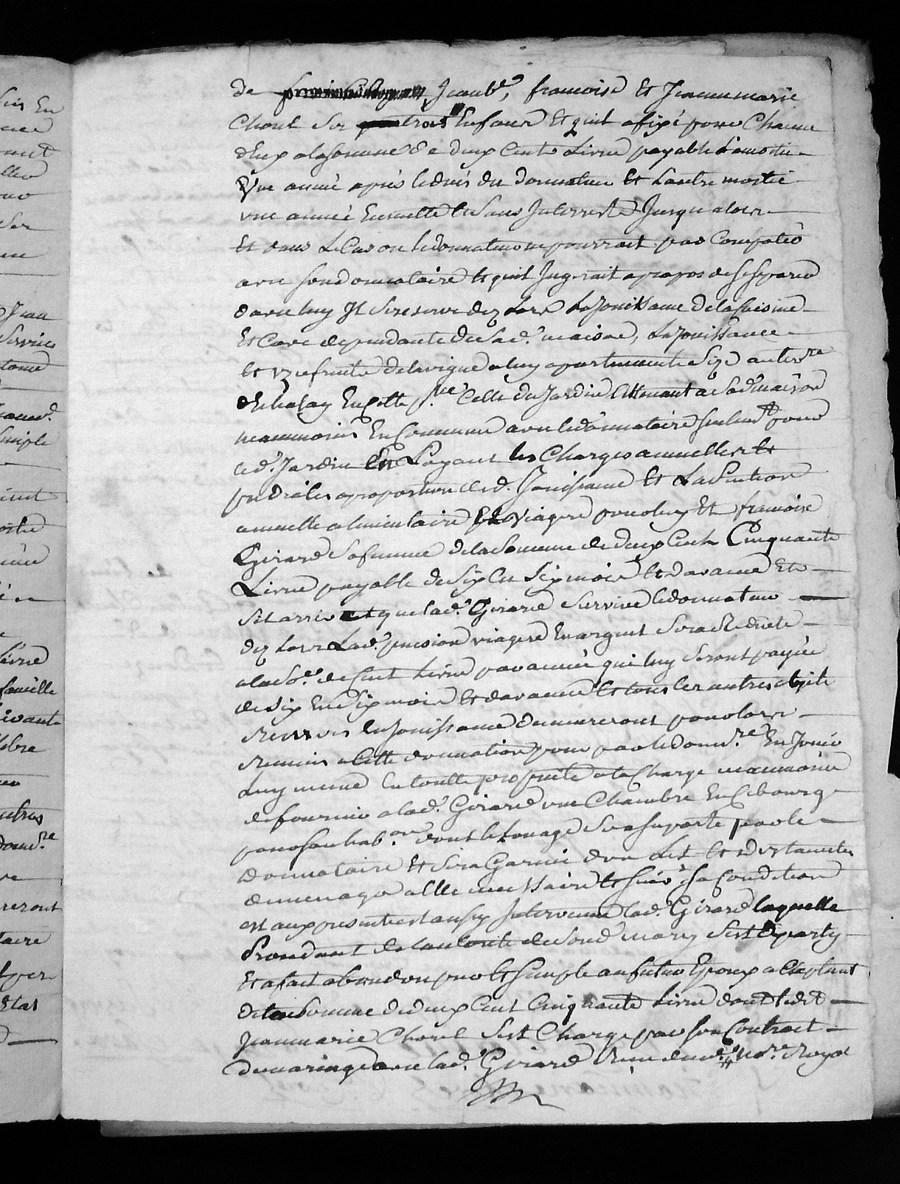 de Jeanbte, francoise et Jeanne marie
Chorel ses trois Enfans et quil a fixé pour Chacun
d'eux a la somme de deux Cents Livres payable La moitié
Une année après le decès du donnateur et Lautre moitié
une année Ensuitte et sans Interrests Jusqualors
Et dans Le Cas ou le donnateur ne pourrait pas Compatir
avec son donnataire et quil Jugerait apropos de se separer
davec luy Il se reserve dez Lors La Jouissance de la Cuisine
Et Cave dependante de sad. maison, La Jouissance
et Uzufruits de la vigne a luy apartenante Size au terre
Celle du Jardin attenant a sad. maison
neammoins En Commun avec le donnataire seulemt pour
led. Jardin En Payant les Charges annuelles et
feodales aproportion de lad. Jouissance et La Pention
annuelle alimentaire Et viagere pour luy Et francoise
Girard sa femme de la somme de deux Cents Cinquante
Livres payable de six En six mois et davance Et
sil arrivoit que lad. Girard survive le donnateur
dez Lors Lad. pension viagere En argent sera Reduite
a la so.e de Cent Livres par année qui luy seront payée
de six En six mois et davance et tous les autres objets
reservés En Jouissance demeureront pour lors
Reunis a Cette donnation pour par le donn.re En Jouir
Luy meme En toutte proprieté a la Charge neammoins
de fournir a lad. Girard une Chambre En Ce bourg
pour son hab.on dont le Louage sera suporté par le
Donnataire et sera Garnie d'un Lit et des Ustancilles
de menage a elle necessaire et suiv.t sa Condition
est aux presentes aussy Intervenue lad. Girard laquelle
Procedant de lautorité de sond. mary s'est departy
Et a fait abandon pur et simple au futur Epoux acceptant
de la somme de deux Cent Cinquante Livres dont ledit
Jeanmarie Chorel s'est Chargé par son Contrat
de mariage avec lad. Girard Reçu de m.e no.re Royal